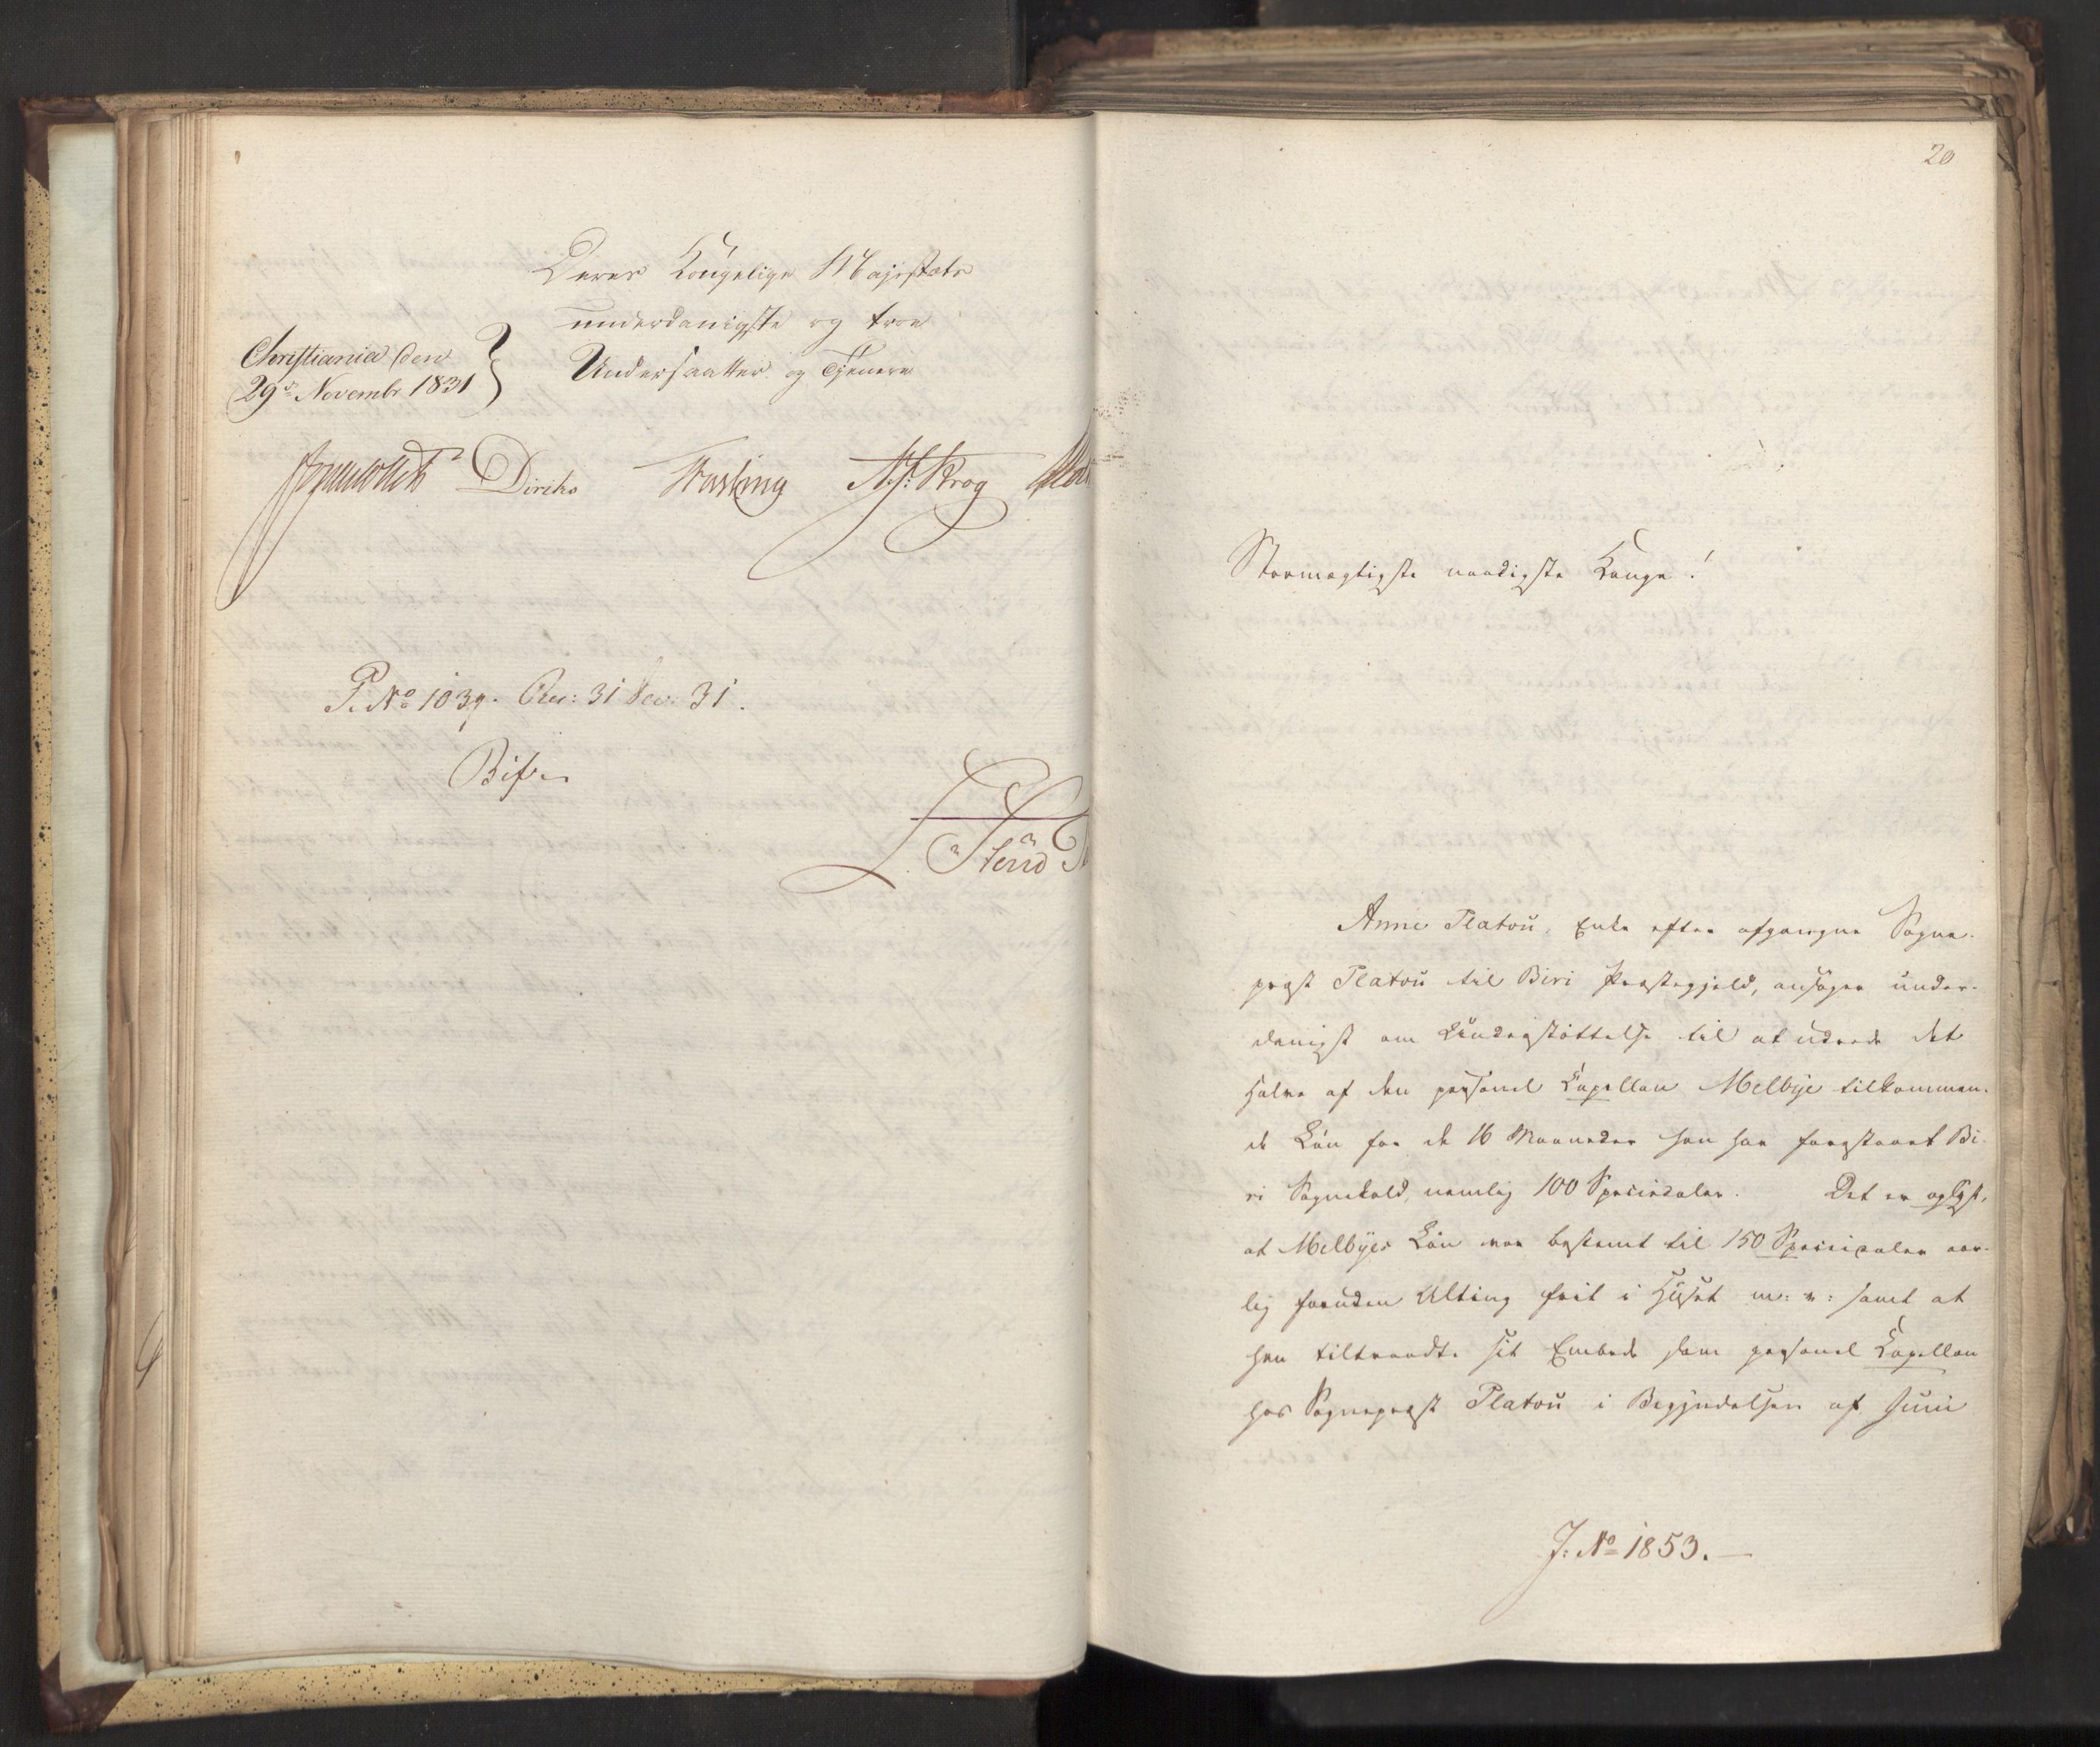 Deres Kongelige Majestæts
underdanigste og troe
Undersaatter og Tjenere
Christiania den
29de Novembr 1831
Diriks Fasting N. J: Krog
P. No 1039.
Bif.
20
Stormægtigste naadigste Konge!
Anne Platou, Enke efter afgangne Sogne-
præst Platou til Biri Præstegjeld, ansøger under-
danigst om Understøttelse til at udrede det
Halve af den personel Capellan Melbye tilkommen-
de Løn for de 16 Maaneder han har forestaaet Bi-
ri Sognekald, nemlig 100 Speciedaler. Det er oplyst,
at Melbyes Løn var bestemt til 150 Speciedaler aar-
lig foruden Alting frit i Huset m: v: samt at
han tiltraadte sit Embede som personel Capellan
hos Sognepræst Platou i Begyndelsen af Juni
J: No 1853.